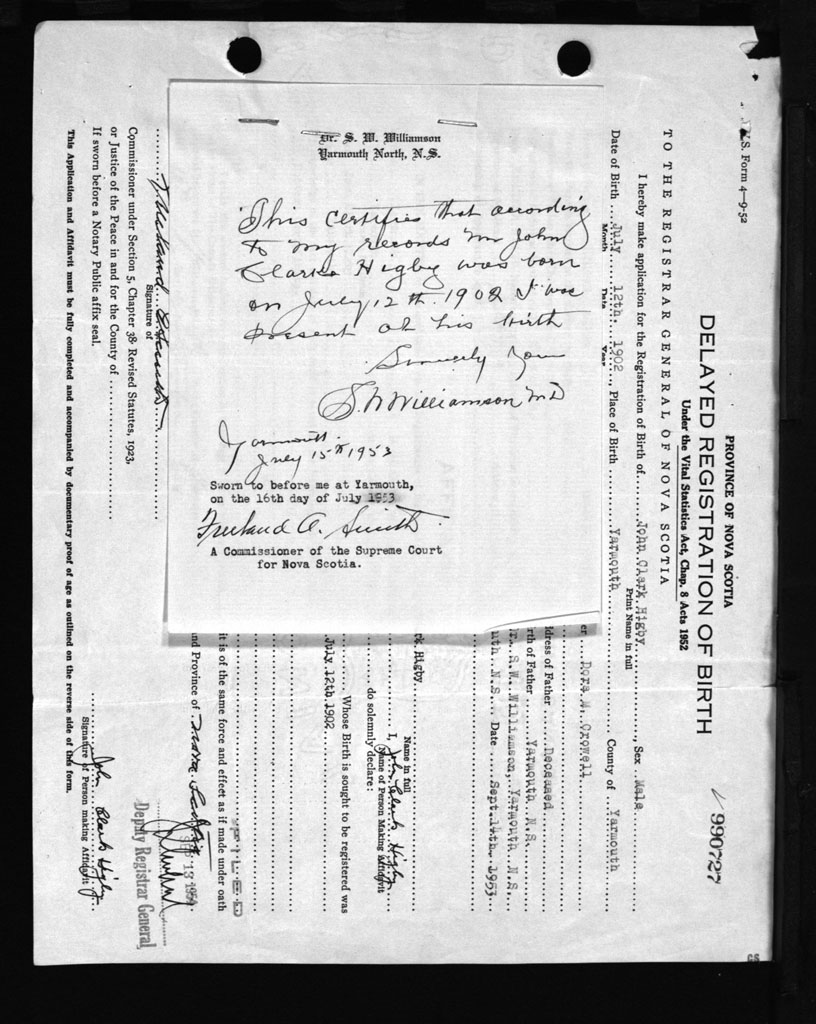 Dr. S. W. Williamson
Yarmouth North, N.S.
This certifies that according
to my records Mr John
Clarke Higby was born
on July 12th 1902 I was
present at his birth
Sincerely Yours
S. W Williamson M D
Yarmouth.
July 15th 1953
Sworn to before me at Yarmouth,
on the 16th day of July 1953
Freeland A. Smith
A Commissioner of the Supreme Court
for Nova Scotia.
V.S. Form 4—9-52
PROVINCE OF NOVA SCOTIA
DELAYED REGISTRATION OF BIRTH
Under the Vital Statistics Act, Chap. 8 Acts 1952
990727
TO THE REGISTRAR GENERAL OF NOVA SCOTIA
I hereby make application for the Registration of Birth of John Clark Higby, Sex Male
Print Name in full
Date of Birth July 12th. 1902, Place of Birth Yarmouth County of Yarmouth
Month Date Year
er Dora M. Crowell
ddress of Father Deceased
rth of Father Yarmouth N.S.
Dr. S.W. Williamson, Yarmouth N.S.
uth N.S. Date Sept. 14th. 1953
Name in full
rk Higby I, John Clark Higby
Name of Person Making Affidavit
do solemnly declare:
Whose Birth is sought to be registered was
July 12th 1902
FILED
it is of the same force and effect as if made under oath
nd Province of Nova Scotia
13 1954
Deputy Registrar General
Freeland A. Smith
Signature of
Commissioner under Section 5, Chapter 38 Revised Statutes, 1923,
or Justice of the Peace in and for the County of
If sworn before a Notary Public affix seal.
John Clark Higby
Signature of Person making Affidavit
This Application and Affidavit must be fully completed and accompanied by documentary proof of age as outlined on the reverse side of this form.
CS